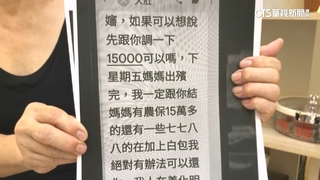 CTS華視新聞
嬸,如果可以想說
先跟你調一下
15000可以嗎,下
星期五媽媽出殯
完,我一定跟你結
媽媽有農保15萬多
的還有一些七七八
八的在加上白包我
絕對有辦法可以還